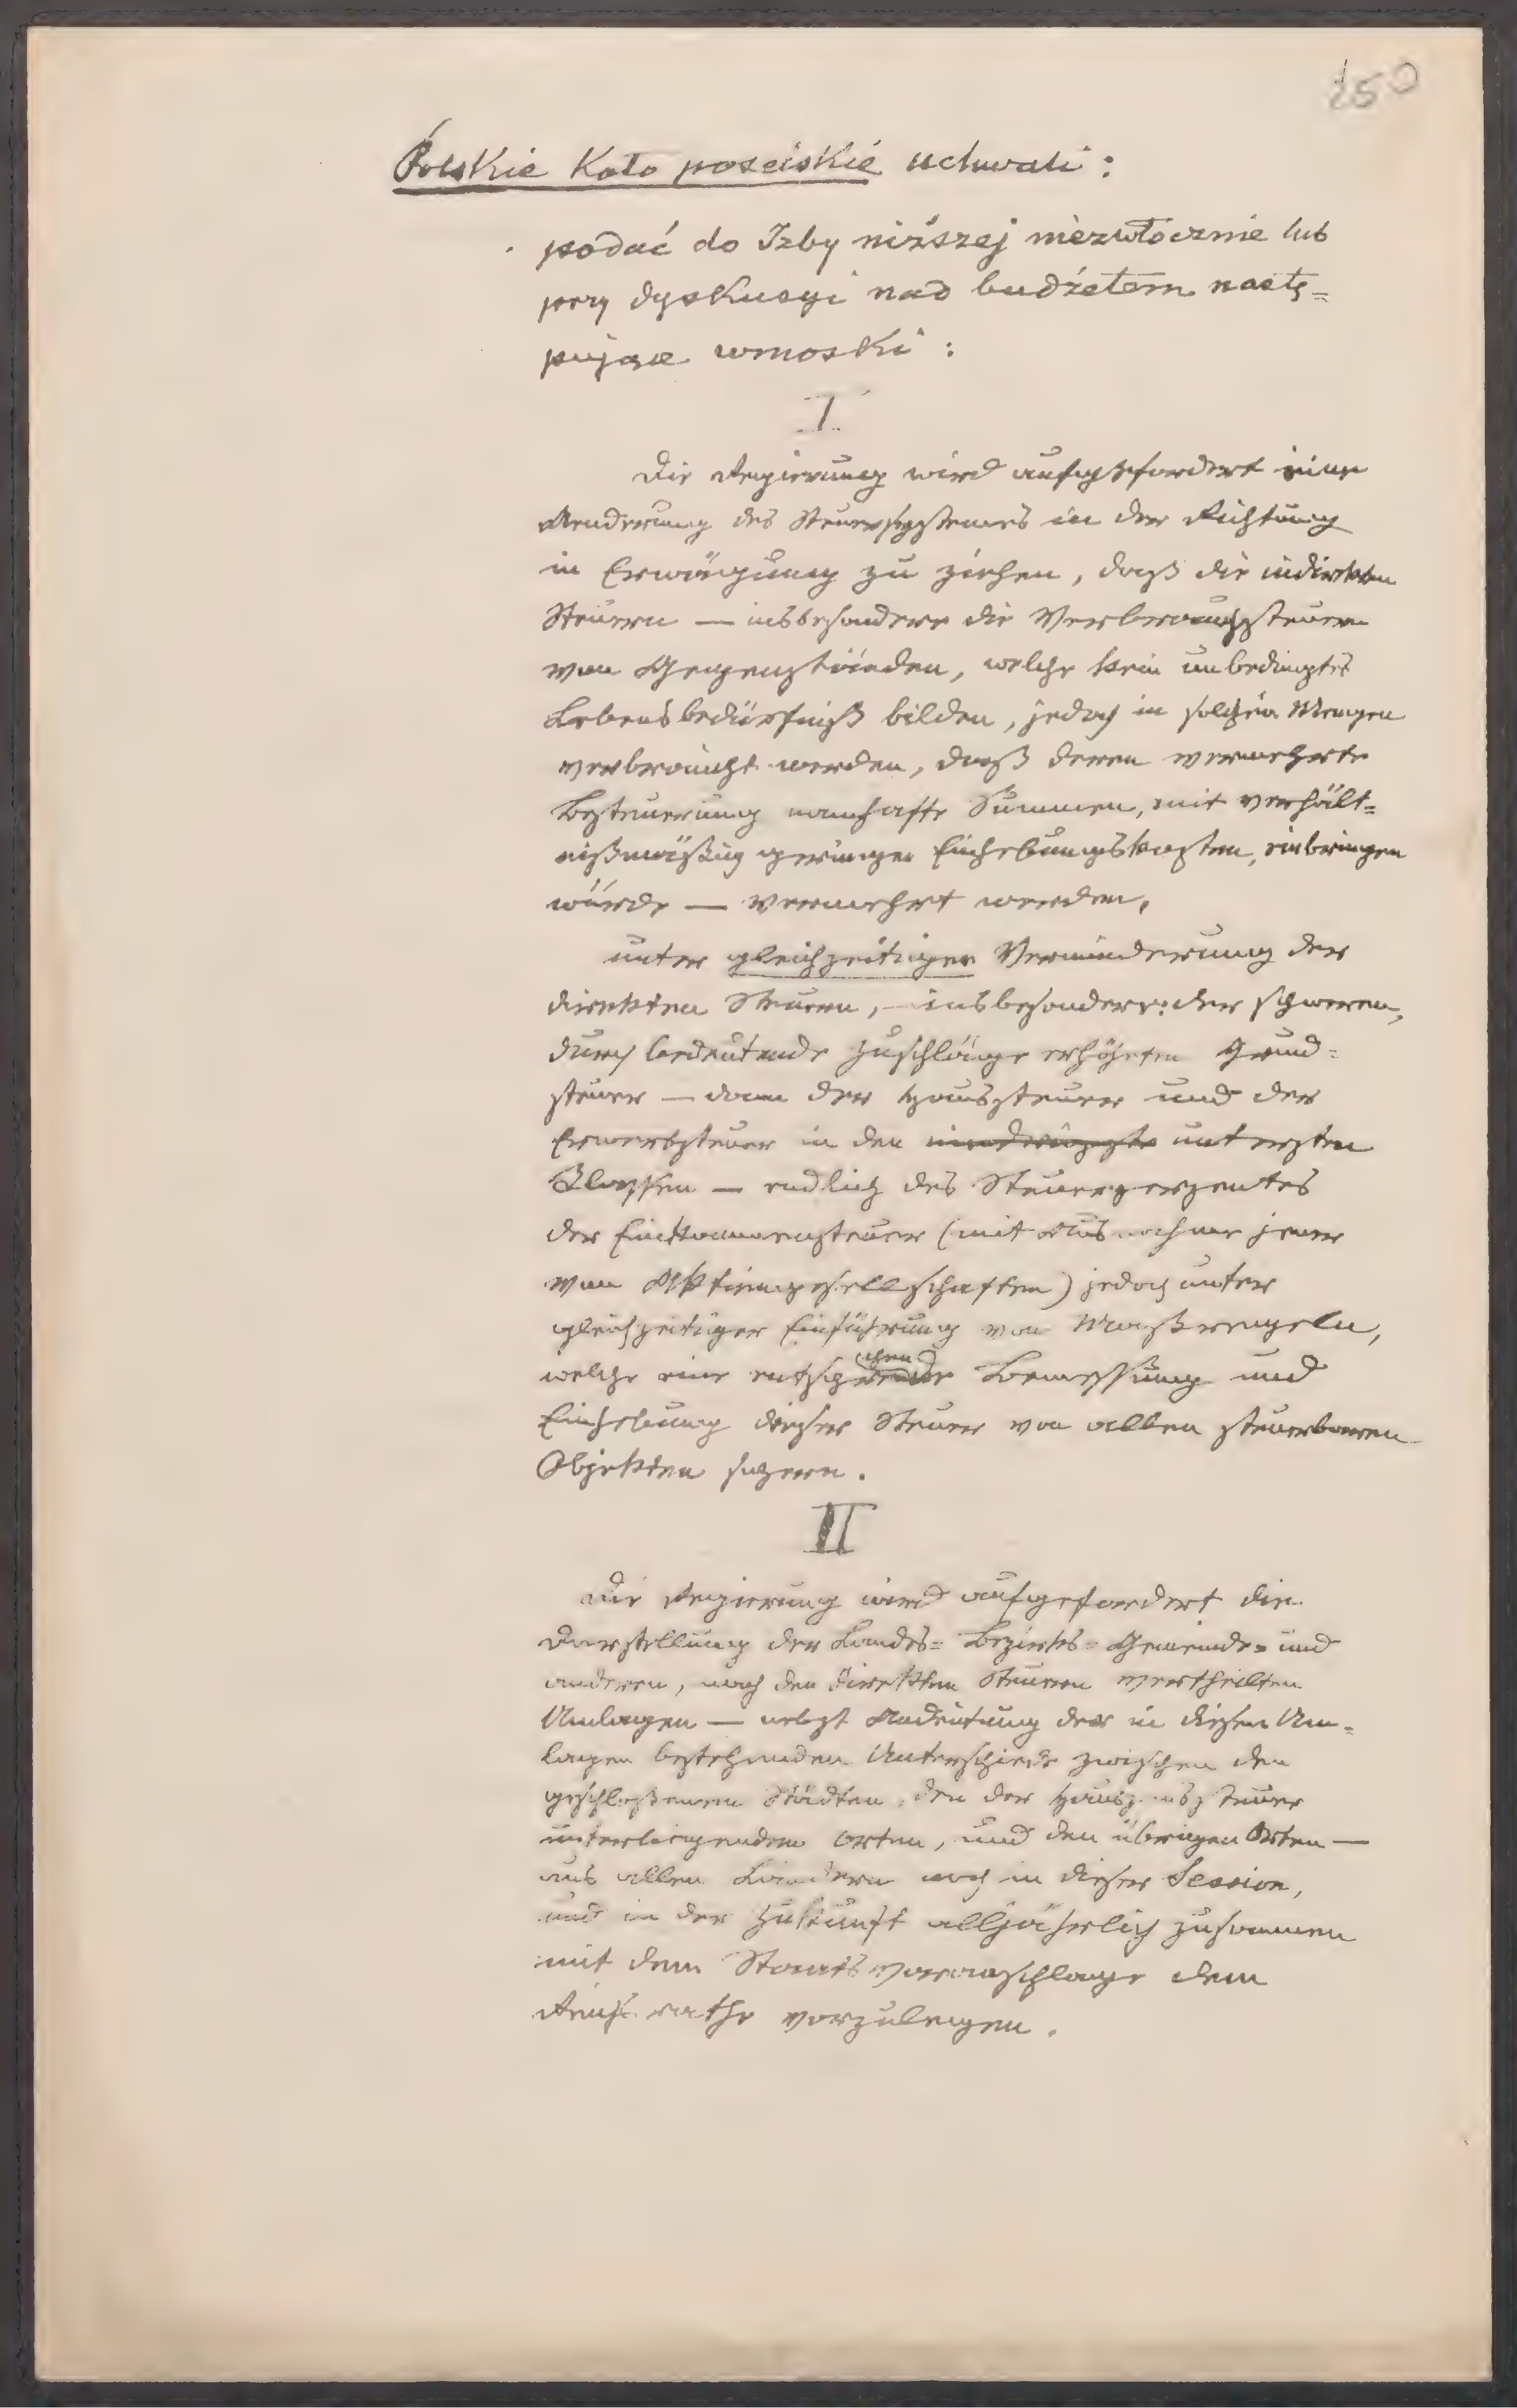 250
Polskie Koło poselskie uchwali:
podać do Izby niższej niezwłocznie lub
przy dyskusyi nad budżetem nastę=
pujące wnioski:
I.
Die Regierung wird aufgefordert eine
Aenderung des Steuersystemes in der Richtung
in Erwägung zu ziehen, daß die indirekten
Steuern — insbesondere die Verbrauchssteuern
von Gegenständen, welche kein unbedingtes
Lebensbedürfniß bilden, jedoch in solchen Mengen
verbraucht werden, daß deren vermehrte
Besteuerung namhafte Summen, mit verhält=
nißmäßig geringen Einhebungskosten, einbringen
würde — vermehrt werden,
unter gleichzeitiger Verminderung der
direkten Steuern, — insbesondere: der schweren,
durch bedeutende Zuschläge erhöhten Grund=
steuer — dann der Haussteuer und der
Erwerbsteuer in den untersten
Klassen — endlich des Steuerperzentes
der Einkommensteuer (mit Ausnahme jener
von Aktiengesellschaften) jedoch unter
gleichzeitiger Einführung von Maßregeln,
welche eine Bemessung und
Einhebung dieser Steuer von allen steuerbaren
Objekten sichern.
II
Die Regierung wird aufgefordert die
Darstellung der Landes= Bezirks= Gemeinde= und
anderen, nach den direkten Steuern vertheilten
Umlagen — nebst Andeutung der in diesen Um=
lagen bestehenden Unterschiede zwischen den
geschlossenen Städten, den der Hauszinssteuer
unterliegenden Orten, und den übrigen Orten —
aus allen Ländern noch in dieser Session,
und in der Zukunft alljährlich zusammen
mit dem Staatsvoranschlage dem
Reichsrathe vorzulegen.